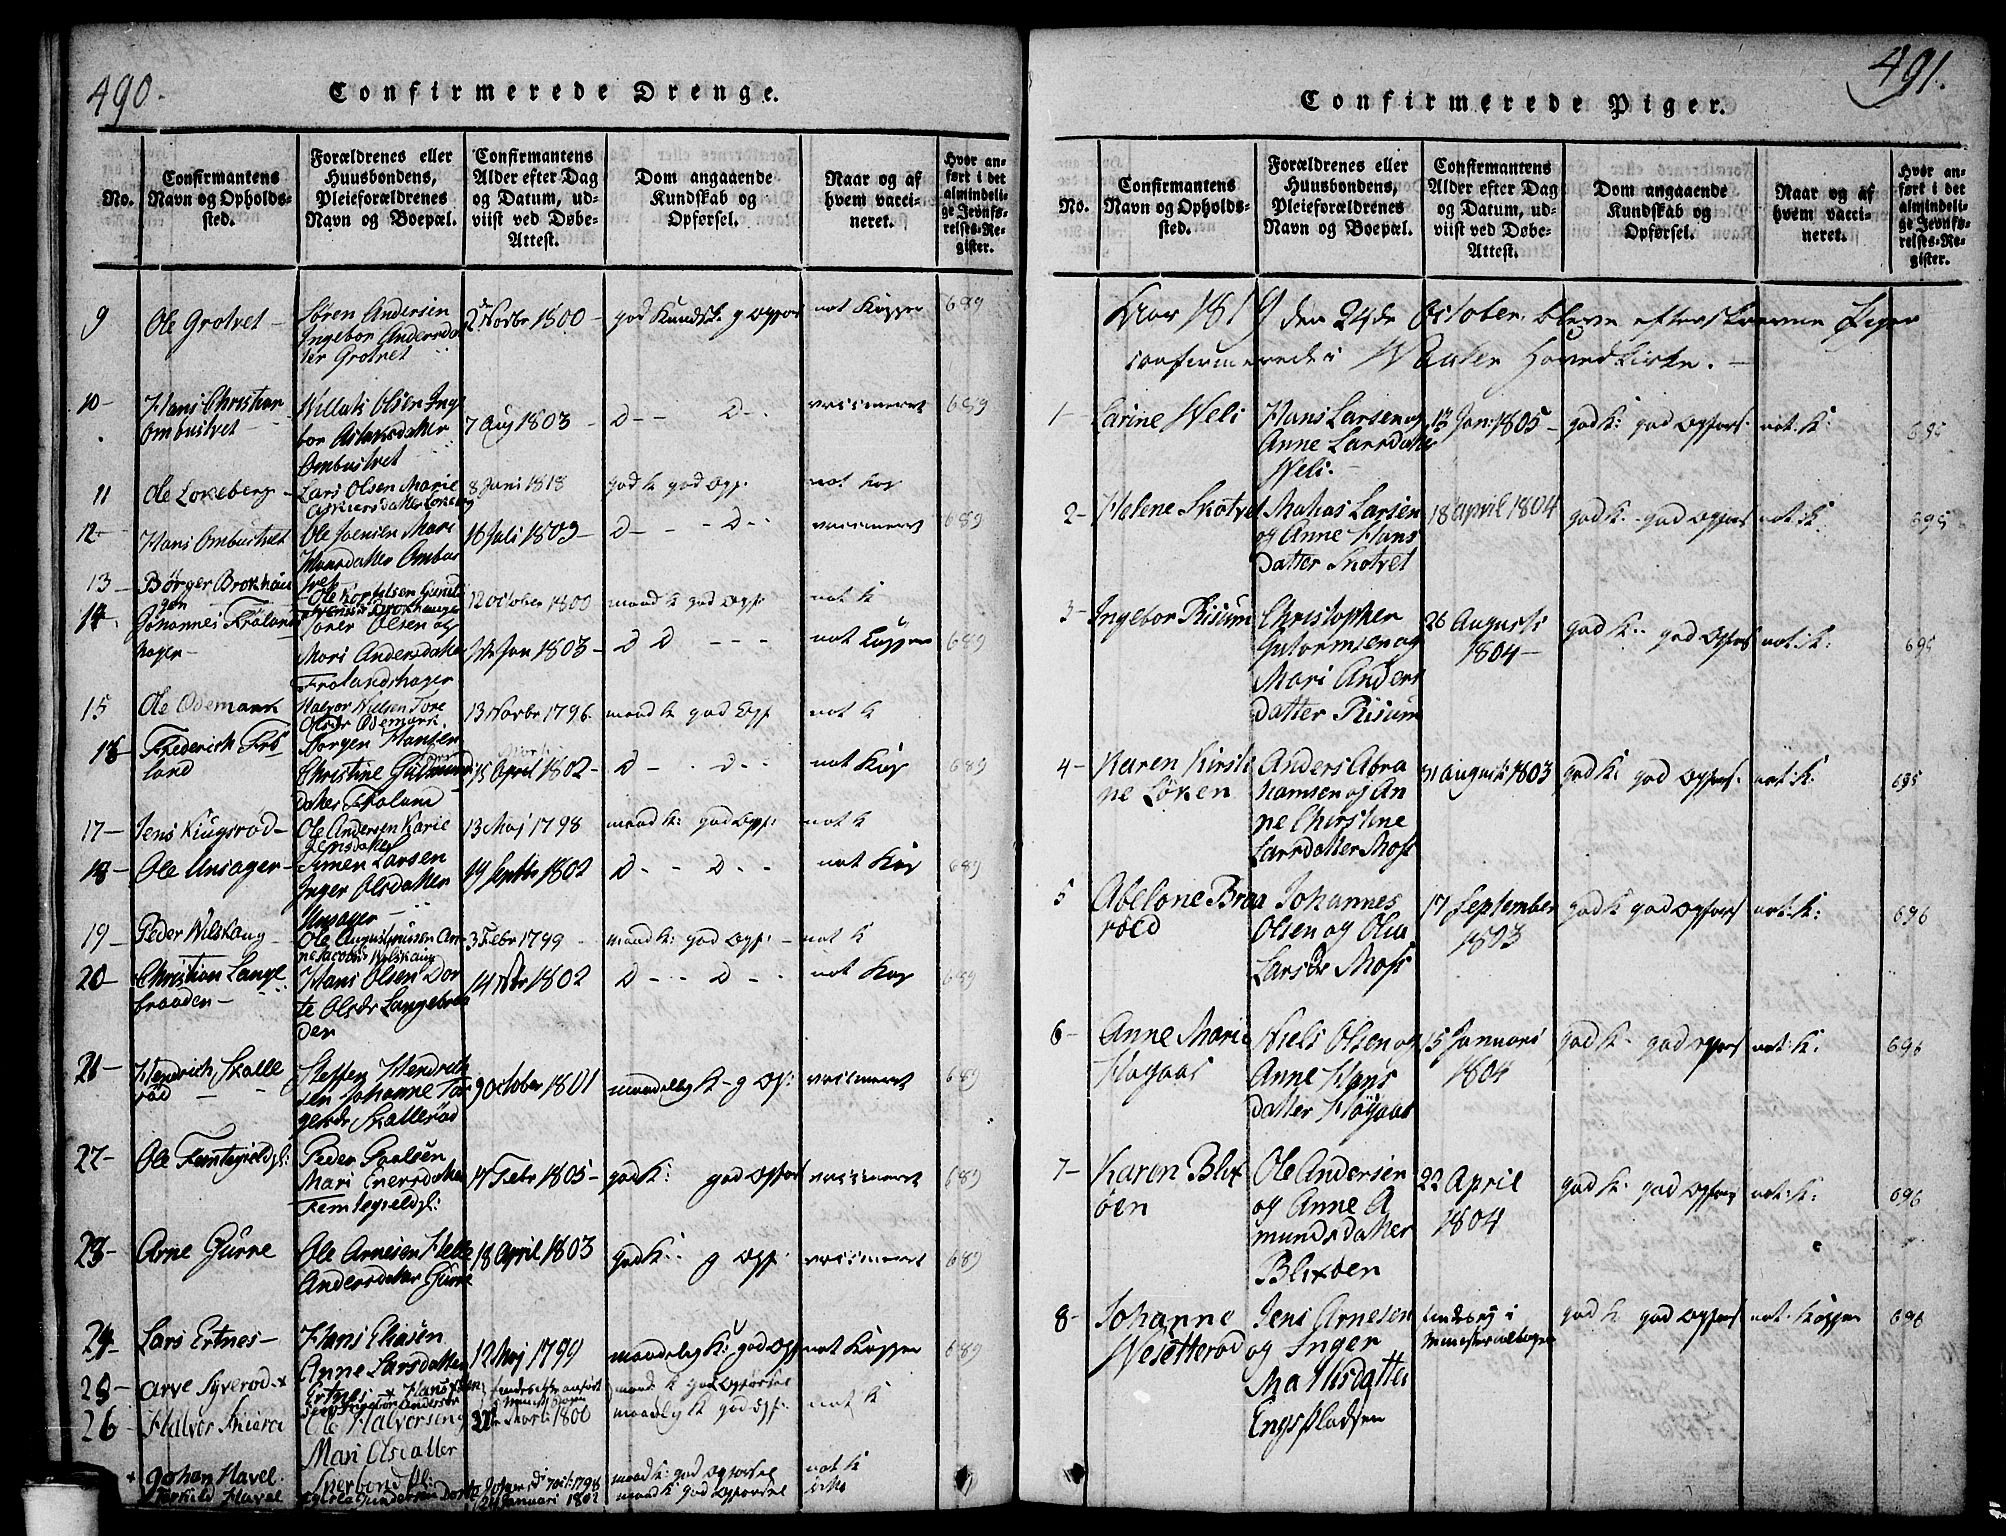 490.
Confirmerede Drenge.
No.
Confirmantens Navn og Opholdssted.
Forældrenes eller Huusbondens, Pleieforældrenes Navn og Boepæl.
Confirmantens Alder efter Dag og Datum, udviist ved Døbe-Attest.
Dom angaaende Kundskab og Opførsel.
Naar og af hvem vaccineret.
Hvor anført i det almindelige Jevnførelses-Register.
9 Ole Grotvet Søren Andersen Ingebor Andersdatter Grotvet 2 Novbr 1800 god Kundsk. g Opførs not Kopper 689
10 Hans Christian Ombustvet Olsen Ombustvet 7 Aug 1803 D D 689
11 Ole Lokeberg Lars Olsen Marie 8 Juni 1818 god K god Opf. not Kop
12 Hans Ombustvet Ole Jensen Mari 16 Juli 1809 D D 689
13 Børger Brokhaugen 12 October 1800 maad K god Opf. not K
14 Johannes Frølandshagen Olsen og Mari Andersdatter Frølandshagen Jan 1803 D D not Kopper 689
15 Ole Ødemark Halvor Nielsen Tore Olsdr Ødemark. 13 Novbr 1796 maad K god Opf. not K
16 Frederich Frøland Jørgen Hansen Christine datter Frøland 15 April 1802 D D not Kop 689
17 Jens Ole Andersen Karie Jensdatter 13 Maj 1798 maad K: god Opf: not K
18 Ole Unsager Simen Larsen Inger Olsdatter Unsager 19 Septbr 1802 D D not Kop 689
19 Peder Nilskaug Ole Augustinusen Nilskaug 3 Febr 1799 maad K: god Opf: not K
20 Christian Langebraaden Hans Olsen Dorte Olsdr Langebraaden 14 1802 D D not Kop 689
21 Hendrich Skallerød Steffen Johanne Skallerød 9 October 1801 maadelig K g Opf: 689
22 Ole Femtegieldpl: Peder Paulsen Mari datter Femtegieldpl: 17 Febr 1805 god K: god Opførs 689
23 Arne Gurne Ole Arnesen Helle Andersdatter Gurne 18 April 1803 god K: g Opf: 689
24 Lars Ertnes Hans Eliasen Anne Larsdatter Ertnes 12 Maj 1799 maadelig K: god Opf not Kopper 689
25 Arve Syverød maad K god Opførsel
26 Halvor Ole Halversen Mari Olsdatter 1800 maadlig K god Opf: not K
Johan Havel. 1798 maad K: god Opførsel not K
Havel Januari 1802 maad K god Opførsel
491.
Confirmerede Piger.
No.
Confirmantens Navn og Opholdssted.
Forældrenes eller Huusbondens, Pleieforældrenes Navn og Boepæl.
Confirmantens Alder efter Dag og Datum, udviist ved Døbe-Attest.
Dom angaaende Kundskab og Opførsel.
Naar og af hvem vaccineret.
Hvor anført i det almindelige Jevnførelses-Register.
Aar 1819 den 24de October bleve efterskrevne Piger
confirmerede i Waaler Hovedkirke.
1 Karine Weli Hans Larsen og Anne Larsdatter Weli. 13 Jan: 1805 god K: god Opførs: not: K: 695
2 Helene Skotvet Mathias Larsen og Anne Hansdatter Skotvet 18 april 1804 god K: god Opførs not: K: 695
3 Ingebor Risum Christopher Gutormsen og Mari Andersdatter Risum 26 Augusti 1804 god K: god Opførs not: K: 695
4 Karen Kirstine Løken Anders Abrahamsen og Anne Christine Larsdatter Moss 31 august: 1803 god K: god Opførs: not: K: 695
5 Abelone Braarød Johannes Olsen og Olia Larsdr Moss 17 September 1803 god K god Opførs not: K: 696
6 Anne Marie Høgaas Niels Olsen og Anne Hansdatter Høgaas 15 Januari 1804 god K god Opførs not: K: 696
7 Karen Blixøen Ole Andersen og Anne Amundsdatter Blixøen 22 April 1804 god K: god Opførs not: K: 696
8 Johanne Wesetterød Jens Arnesen og Inger Mathisdatter Engspladsen findes ej i Ministerialbogen god K god Opførs not: Kopper 696